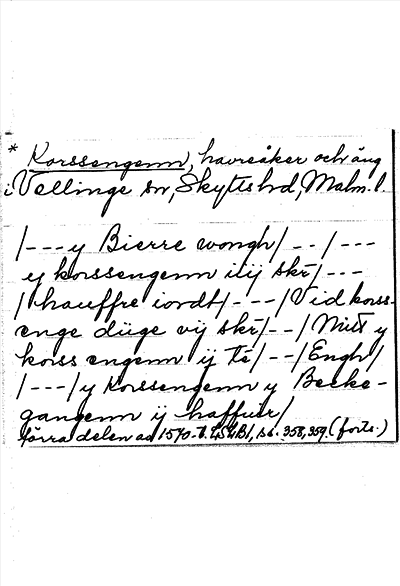 * Korssengenn, havreåker och äng
i Vellinge sn, Skytts hd, Malm. l.
/---y Bierre wongh/--/---
y korssengenn iiij skr/---
/hauffre iordt/---/Vid korss-
enge düge vij skr/--/Mitt y
korss engenn ij te/--/Engh/
/---/y Korssengenn y Becke-
gangenn ij haffuer/
förra delen av 1570. t. LSLB1, ss. 358, 359. (forts.)